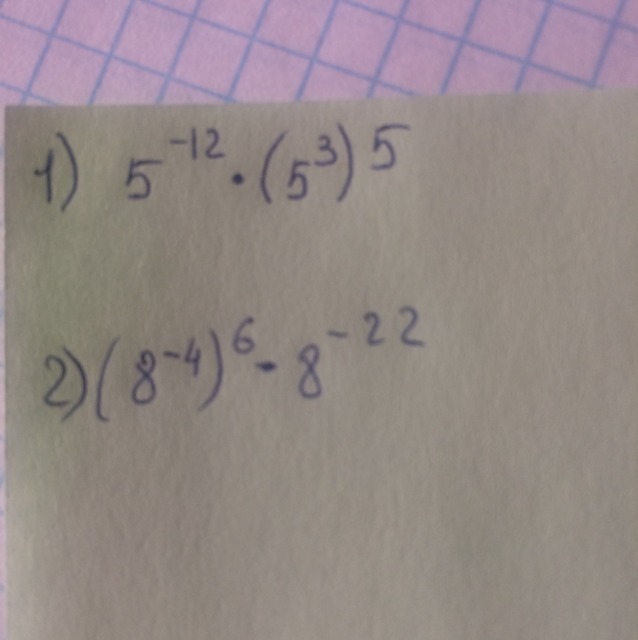 1) 5⁻¹² · (5³)⁵
2) (8⁻⁴)⁶ - 8⁻²²